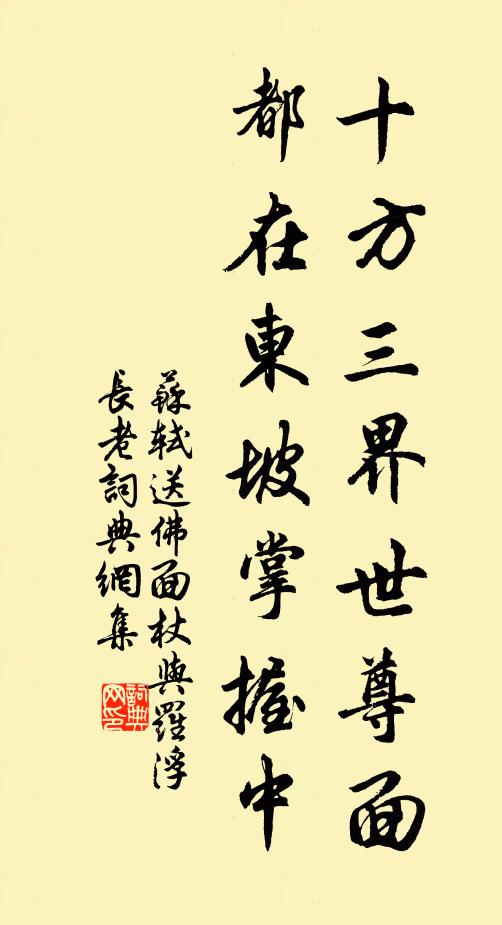 十方三界世尊面
都在東坡掌握中
蘇軾送佛面杖與羅浮
長老詞典網集
詞典网印